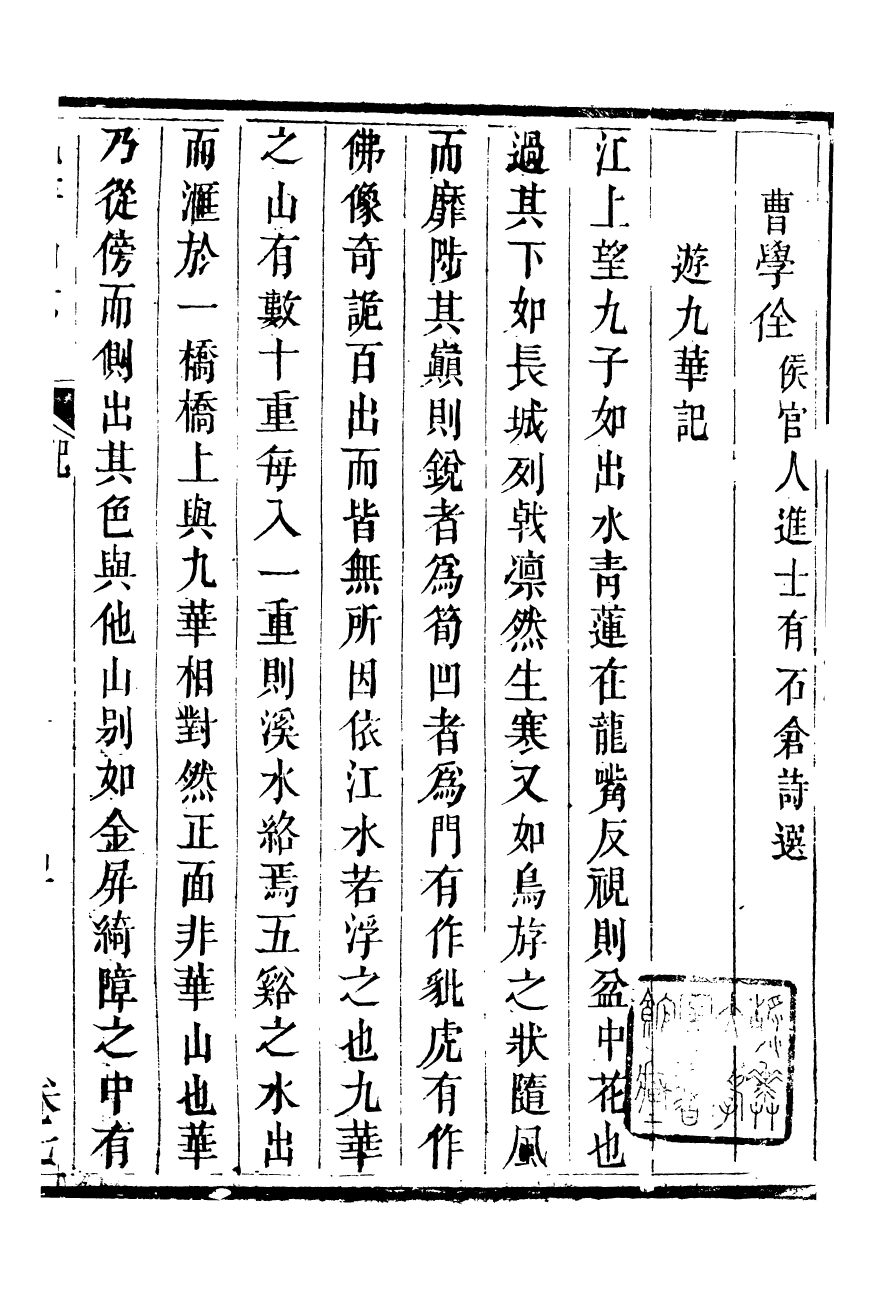 曹學佺 侯官人進士有石倉詩選
遊九華記
江上望九子如出水青蓮在龍嘴反視則盆中花也
過其下如長城列戟凛然生寒又如鳥斿之狀隨風
而靡陟其巔則銳者爲筍凹者爲門有作貔虎有作
佛像奇詭百出而皆無所因依江水若浮之也九華
之山有數十重每入一重則溪水絡焉五谿之水出
而滙於一橋橋上與九華相對然正面非華山也華
乃從傍而側出其色與他山别如金屏綺障之中有
記
卷七